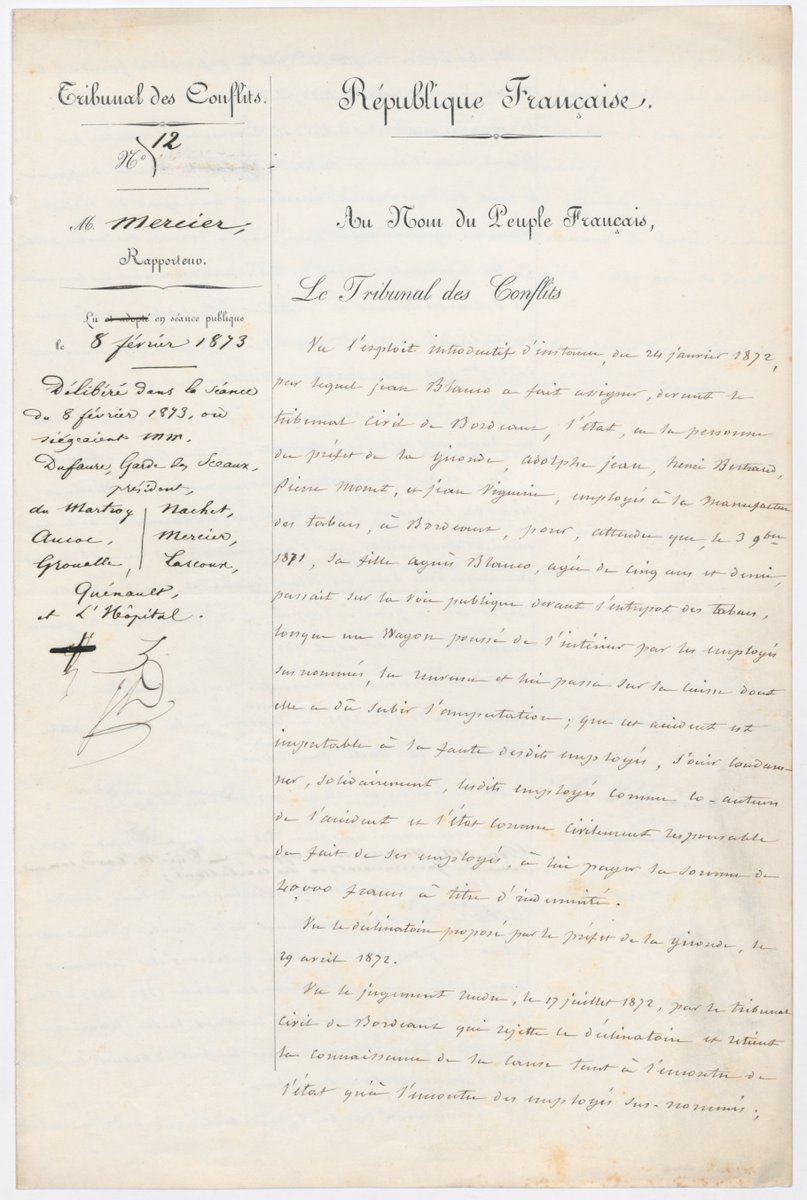 Tribunal des Conflits.
N° 12
M. Mercier,
Rapporteur.
Lu et adopté en séance publique
le 8 février 1873
Délibéré dans la séance
du 8 février 1873, où
siégeaient MM.
Dufaure, Garde des Sceaux,
président,
du Martroy Nachet,
Aucoc, Mercier,
Groualle, Lascoux,
Guénault,
et L'Hôpital.
République Française.
Au Nom du Peuple Français,
Le Tribunal des Conflits
Vu l'exploit introductif d'instance, du 24 janvier 1872,
par lequel jean Blanco a fait assigner, devant le
tribunal civil de Bordeaux, l'état, en la personne
du préfet de la gironde, adolphe jean, henri Bertrand,
Pierre Monet, et jean Viguerie, employés à la manufacture
des tabacs, à Bordeaux, pour, attendu que, le 3 9bre
1871, sa fille agnès Blanco, agée de cinq ans et demi,
passait sur la voie publique devant l'entrepot des tabacs,
lorsque un wagon poussé de l'intérieur par les employés
susnommés, la renversa et lui passa sur la cuisse dont
elle a dû subir l'amputation; que cet accident est
imputable à la faute desdits employés, s'ouir condam-
ner, solidairement, lesdits employés comme co-auteurs
de l'accident et l'état comme civilement responsable
du fait de ses employés, à lui payer la somme de
40,000 francs à titre d'indemnité.
Vu le déclinatoire proposé par le préfet de la gironde, le
29 avril 1872.
Vu le jugement rendu, le 17 juillet 1872, par le tribunal
civil de Bordeaux qui rejette le déclinatoire et retient
la connaissance de la cause tant à l'encontre de
l'état qu'à l'encontre des employés sus-nommés;